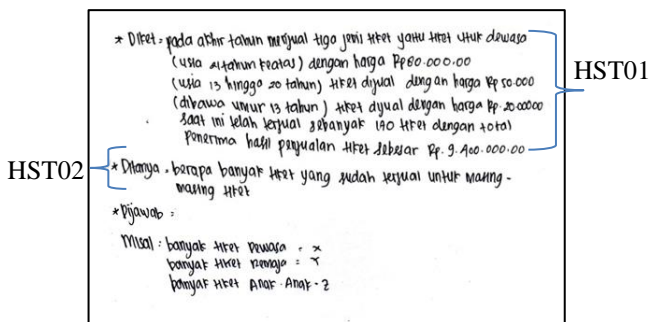 * Diket = pada akhir tahun menjual tiga jenis tiket yaitu tiket untuk dewasa
(usia 21 tahun keatas) dengan harga Rp 80.000.00
(usia 13 hingga 20 tahun) tiket dijual dengan harga Rp 50.000
(dibawa umur 13 tahun) tiket dijual dengan harga Rp. 30.00000
saat ini telah terjual sebanyak 190 tiket dengan total
Penerima hasil penjualan tiket sebesar Rp. 9.400.000.00
HST01
HST02
* Ditanya = berapa banyak tiket yang sudah terjual untuk masing -
masing tiket
* Dijawab =
Misal : banyak tiket Dewasa = x
banyak tiket remaja = Y
banyak tiket Anak - Anak - z